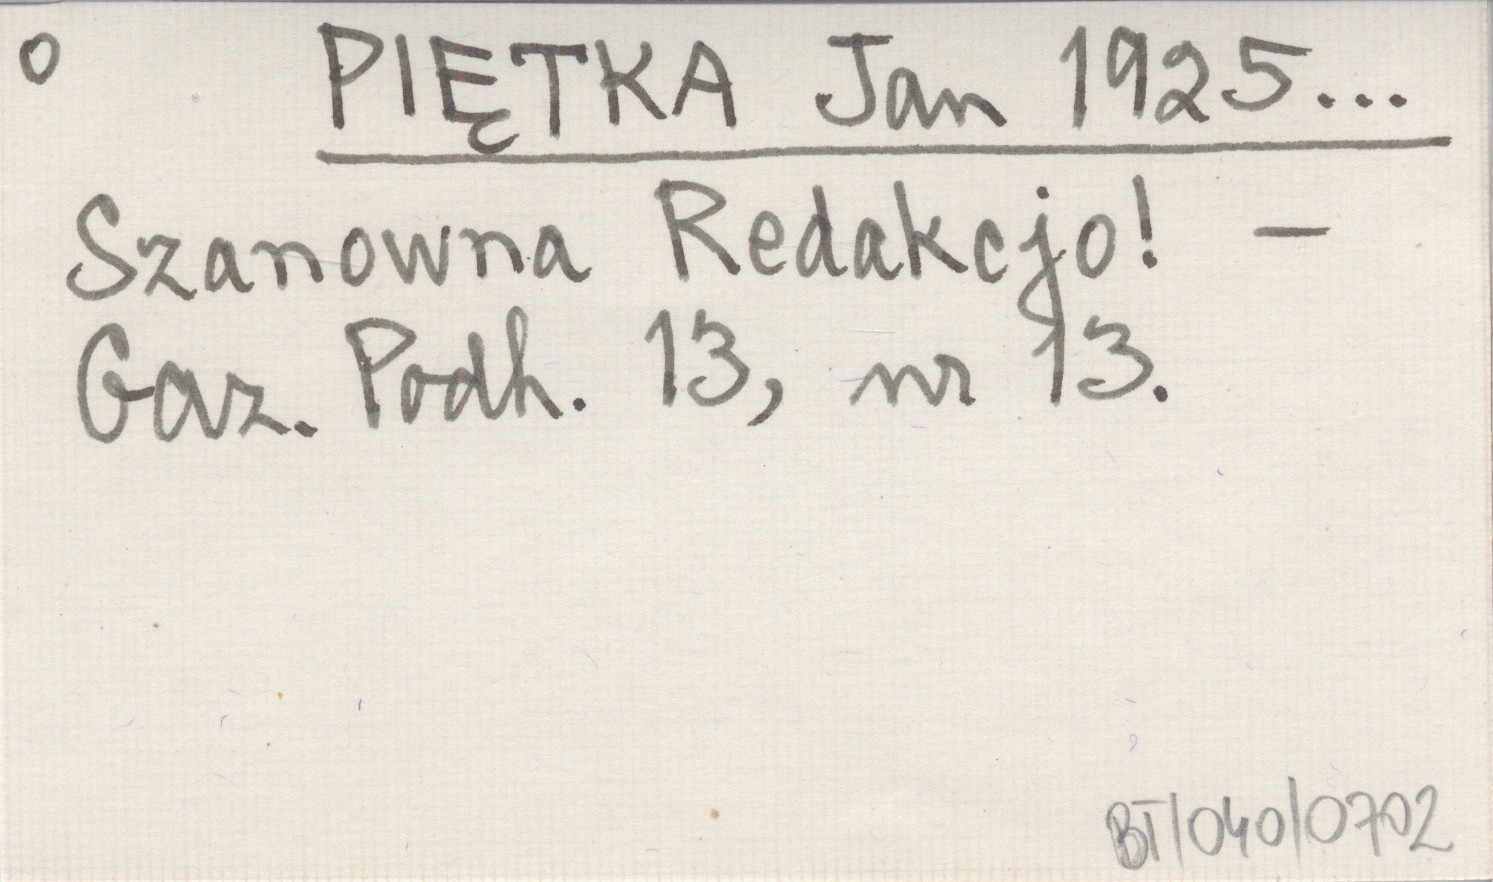 o PIĘTKA Jan 1925...
Szanowna Redakcjo! –
Gaz. Podh. 13, nr 13.
BT/040/0702